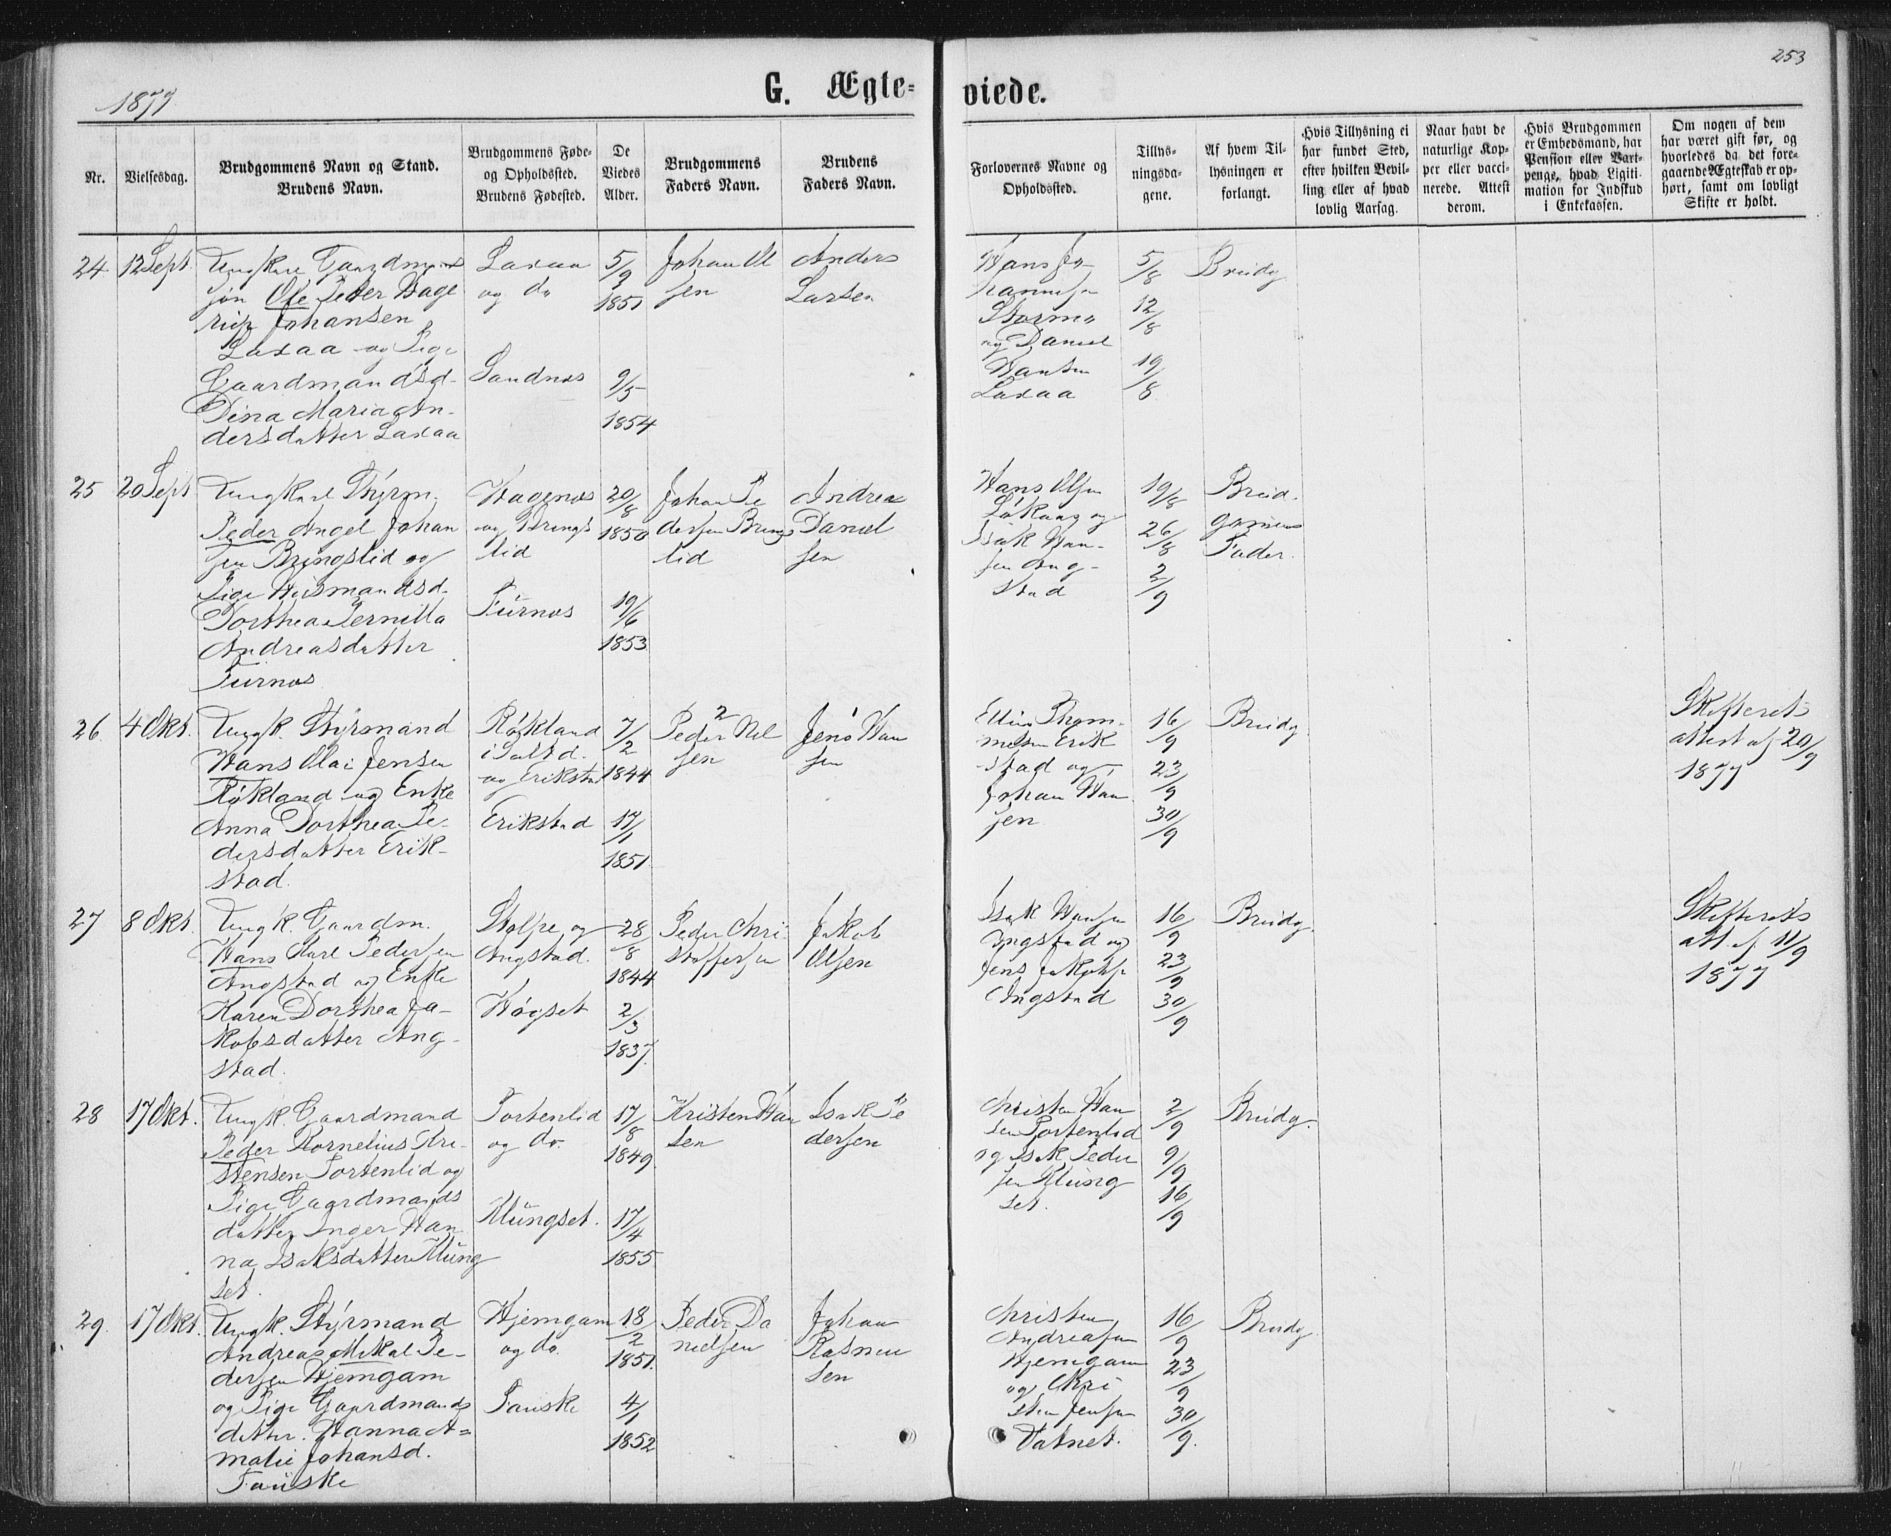 1877
G. Ægte-
viede.
253
Nr.
Vielsesdag.
Brudgommens Navn og Stand.
Brudens Navn.
Brudgommens Føde-
og Opholdssted.
Brudens Fødested.
De
Viedes
Alder.
Brudgommens
Faders Navn.
Brudens
Faders Navn.
Forlovernes Navne og
Opholdssted.
Tillys-
ningsda-
gene.
Af hvem Til-
lysningen er
forlangt.
Hvis Tillysning ei
har fundet Sted,
efter hvilken Bevil-
ling eller af hvad
lovlig Aarsag.
Naar havt de
naturlige Kop-
per eller vacci-
nerede. Attest
derom.
Hvis Brudgommen
er Embedsmand, har
Pension eller Vart-
penge, hvad Ligiti-
mation for Indskud
i Enkekassen.
Om nogen af dem
har været gift før, og
hvorledes da det fore-
gaaende Ægteskab er op-
hørt, samt om lovligt
Skifte er holdt.
24
12 Sept
Ungkarl Gaardmands
søn Ole Peder Hage
rup Johansen
Laxaa og Pige
Gaardmandsd.
Dina Maria An-
dersdatter Laxaa
Laxaa
og do
Sandnes
5/9
1851
9/5
1854
Johan Ol
sen
Anders
Larsen
Hans Jo-
hannesen
Storm
og Daniel
Hansen
Laxaa
5/8
12/8
19/8
Brudg
25
20 Sept
Ungkarl Styrm.
Peder Angel Johan
sen Bringslid og
Pige Husmandsd.
Dorthea Pernilla
Andreasdatter
Furnes
Hagenes
og Brings
lid
Furnes
20/8
1850
19/6
1853
Johan Pe
dersen Brings
lid
Andreas
Daniel
sen
Hans Olsen
Løkaas og
Isak Han-
sen Ang-
stad
19/8
26/8
2/9
Brud-
gommens
Fader.
26
4 Okt.
Ungk. Styrmand
Hans Olai Jensen
Røkland og Enke
Anna Dorthea Pe-
dersdatter Erik-
stad.
Røkland
i Saltd.
og Erikstad
Erikstad
7/2
1844
17/1
1851.
2
Peder Nil
sen
Jens Han
sen
Ellias Thom-
mesen Erik
stad og
Johan Han
sen
16/9
23/9
30/9
Brudg
Skifterets
attest af 20/9
1877
27
8 Okt.
Ungk. Gaardm.
Hans Karl Pedersen
Angstad og Enke
Karen Dorthea Ja-
kobsdatter Ang-
stad.
Stolpe og
Angstad.
Høgset
28/8
1844
2/3
1837.
Peder Chri
stoffersen
Jakob
Olsen
Isak Hansen
Angstad og
Jens Jakobs
Angstad
16/9
23/9
30/9
Brudg.
Skifterets
att. af 11/9
1877
28
17 Okt.
Ungk. Gaardmand
Peder Kornelius Kri-
stensen Tortenlid og
Pige Gaardmands
datter Inger Han-
na Isaksdatter Klung
set.
Tortenlid
og do.
Klungset.
17/8
1849.
17/4
1855
Kristen Han
sen
Isak Pe
dersen
Christen Han
sen Tortenlid
og Isak Peder
sen Klung
set.
2/9
9/9
16/9
Brudg.
29.
17 Okt.
Ungk. Styrmand
Andreas Mikal Pe-
dersen Hjemgam
og Pige Gaardmands
datter. Hanna A=
malie Johansd.
Fauske
Hjemgam
og do.
Fauske
18/2
1851.
4/1
1852
Peder Da
nielsen
Johan
Rasmus
sen
Christen
Andreasen
Hjemgam
og Chri
sten Jensen
Vatnet.
16/9
23/9
30/9.
Brudg.